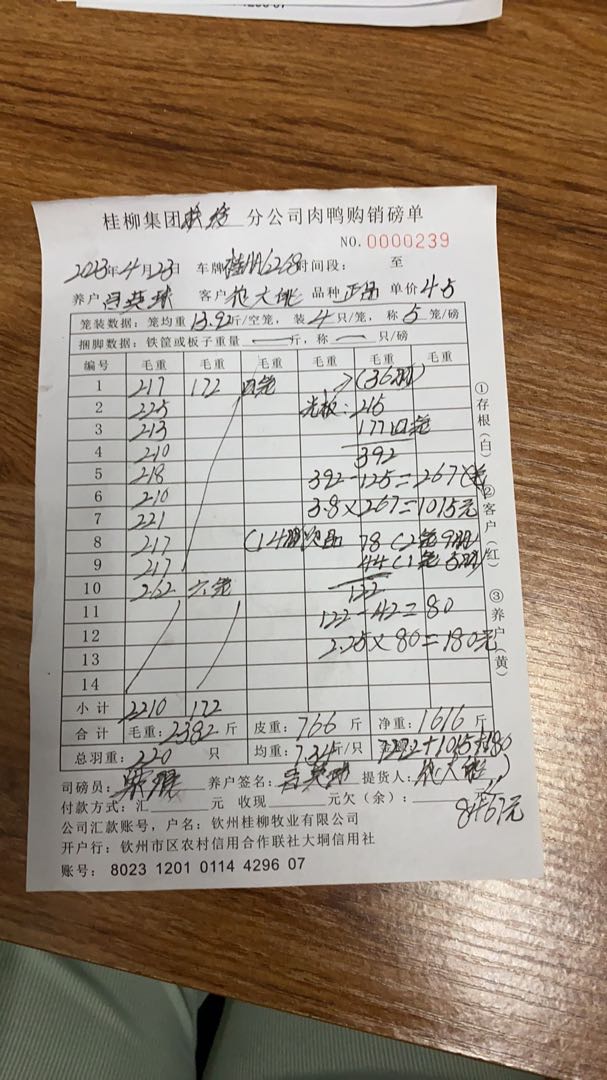 桂柳集团 分公司肉鸭购销磅单
NO.0000239
2023年4月23日 车牌 6268时间段: 至
养户 英球 客户 农大能 品种 正品 单价 4.5
笼装数据:笼均重 13.92斤/空笼,装 4 只/笼,称 5 笼/磅
捆脚数据:铁筐或板子重量 — 斤,称 — 只/磅
编号 毛重 毛重 毛重 毛重 毛重 毛重
1 217 172 四笼 (36羽)
2 225 光板: 215
3 213 177四笼
4 210 392
5 218 392-125=267
6 210 3.8×267=1015元
7 221
8 217 (14羽次品 78(2笼9羽)
9 217 44(1笼5羽)
10 262 六笼 122
11 122-42=80
12 2.25×80=180元
13
14
小计 2210 172
合计 毛重:2382斤 皮重:766斤 净重:1616斤
总羽重:220 只 均重:7.34斤/只 7272+1015+180
司磅员: 养户签名: 英球 提货人:农大能
付款方式:汇 元 收现 元欠(余): 元
8467元
公司汇款账号,户名:钦州桂柳牧业有限公司
开户行:钦州市区农村信用合作联社大垌信用社
账号: 8023 1201 0114 4296 07
①存根(白)②客户(红)③养户(黄)